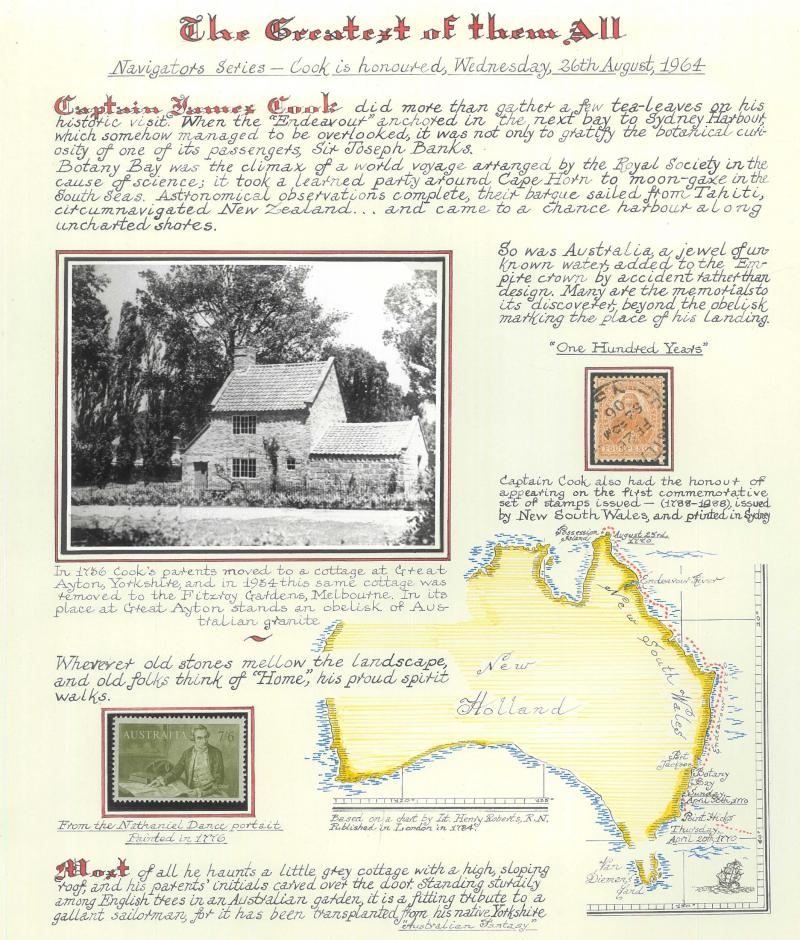 The Greatest of them All
Navigators Series — Cook is honoured, Wednesday, 26th August, 1964
Captain James Cook did more than gather a few tea-leaves on his
historic visit. When the "Endeavour" anchored in the next bay to Sydney Harbour,
which somehow managed to be overlooked, it was not only to gratify the botanical curi-
osity of one of its passengers, Sir Joseph Banks.
Botany Bay was the climax of a world voyage arranged by the Royal Society in the
cause of science; it took a learned party around Cape Horn to moon-gaze in the
South Seas. Astronomical observations complete, their barque sailed from Tahiti,
circumnavigated New Zealand... and came to a chance harbour along
uncharted shores.
So was Australia, a jewel of un-
known water, added to the Em-
pire crown by accident rather than
design. Many are the memorials to
its discoverer, beyond the obelisk
marking the place of his landing.
"One Hundred Years"
FOUR PENCE
Captain Cook also had the honour of
appearing on the first commemorative
set of stamps issued — (1788-1988), issued
by New South Wales, and printed in Sydney
In 1736 Cook's parents moved to a cottage at Great
Ayton, Yorkshire, and in 1934 this same cottage was
removed to the Fitzroy Gardens, Melbourne. In its
place at Great Ayton stands an obelisk of Aus-
tralian granite
Wherever old stones mellow the landscape,
and old folks think of "Home", his proud spirit
walks.
AUSTRALIA 7/6
From the Nathaniel Dance portait
Painted in 1776
Possession
Island
August 23rd,
1770
Endeavour River
New South Wales
New
Holland
Port
Jackson
Botany
Bay
Sunday,
April 30th, 1770
Point Hicks
Thursday,
April 20th, 1770
Van
Diemen's
Land
Based on a chart by Lt. Henry Roberts, R.N.
Published in London in 1784.
Most of all he haunts a little grey cottage with a high, sloping
roof, and his parents' initials carved over the door. Standing sturdily
among English trees in an Australian garden, it is a fitting tribute to a
gallant sailorman, for it has been transplanted from his native Yorkshire
"Australian Fantasy"